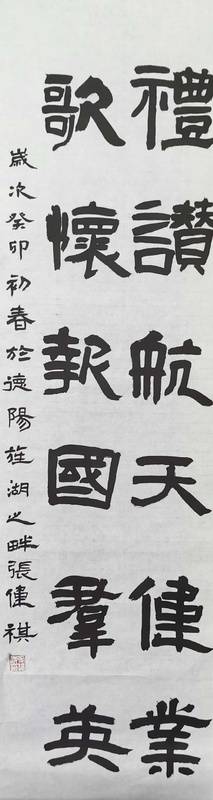 禮讚航天健業
歌懷報國羣英
歲次癸卯初春於德陽旌湖之畔張健祺